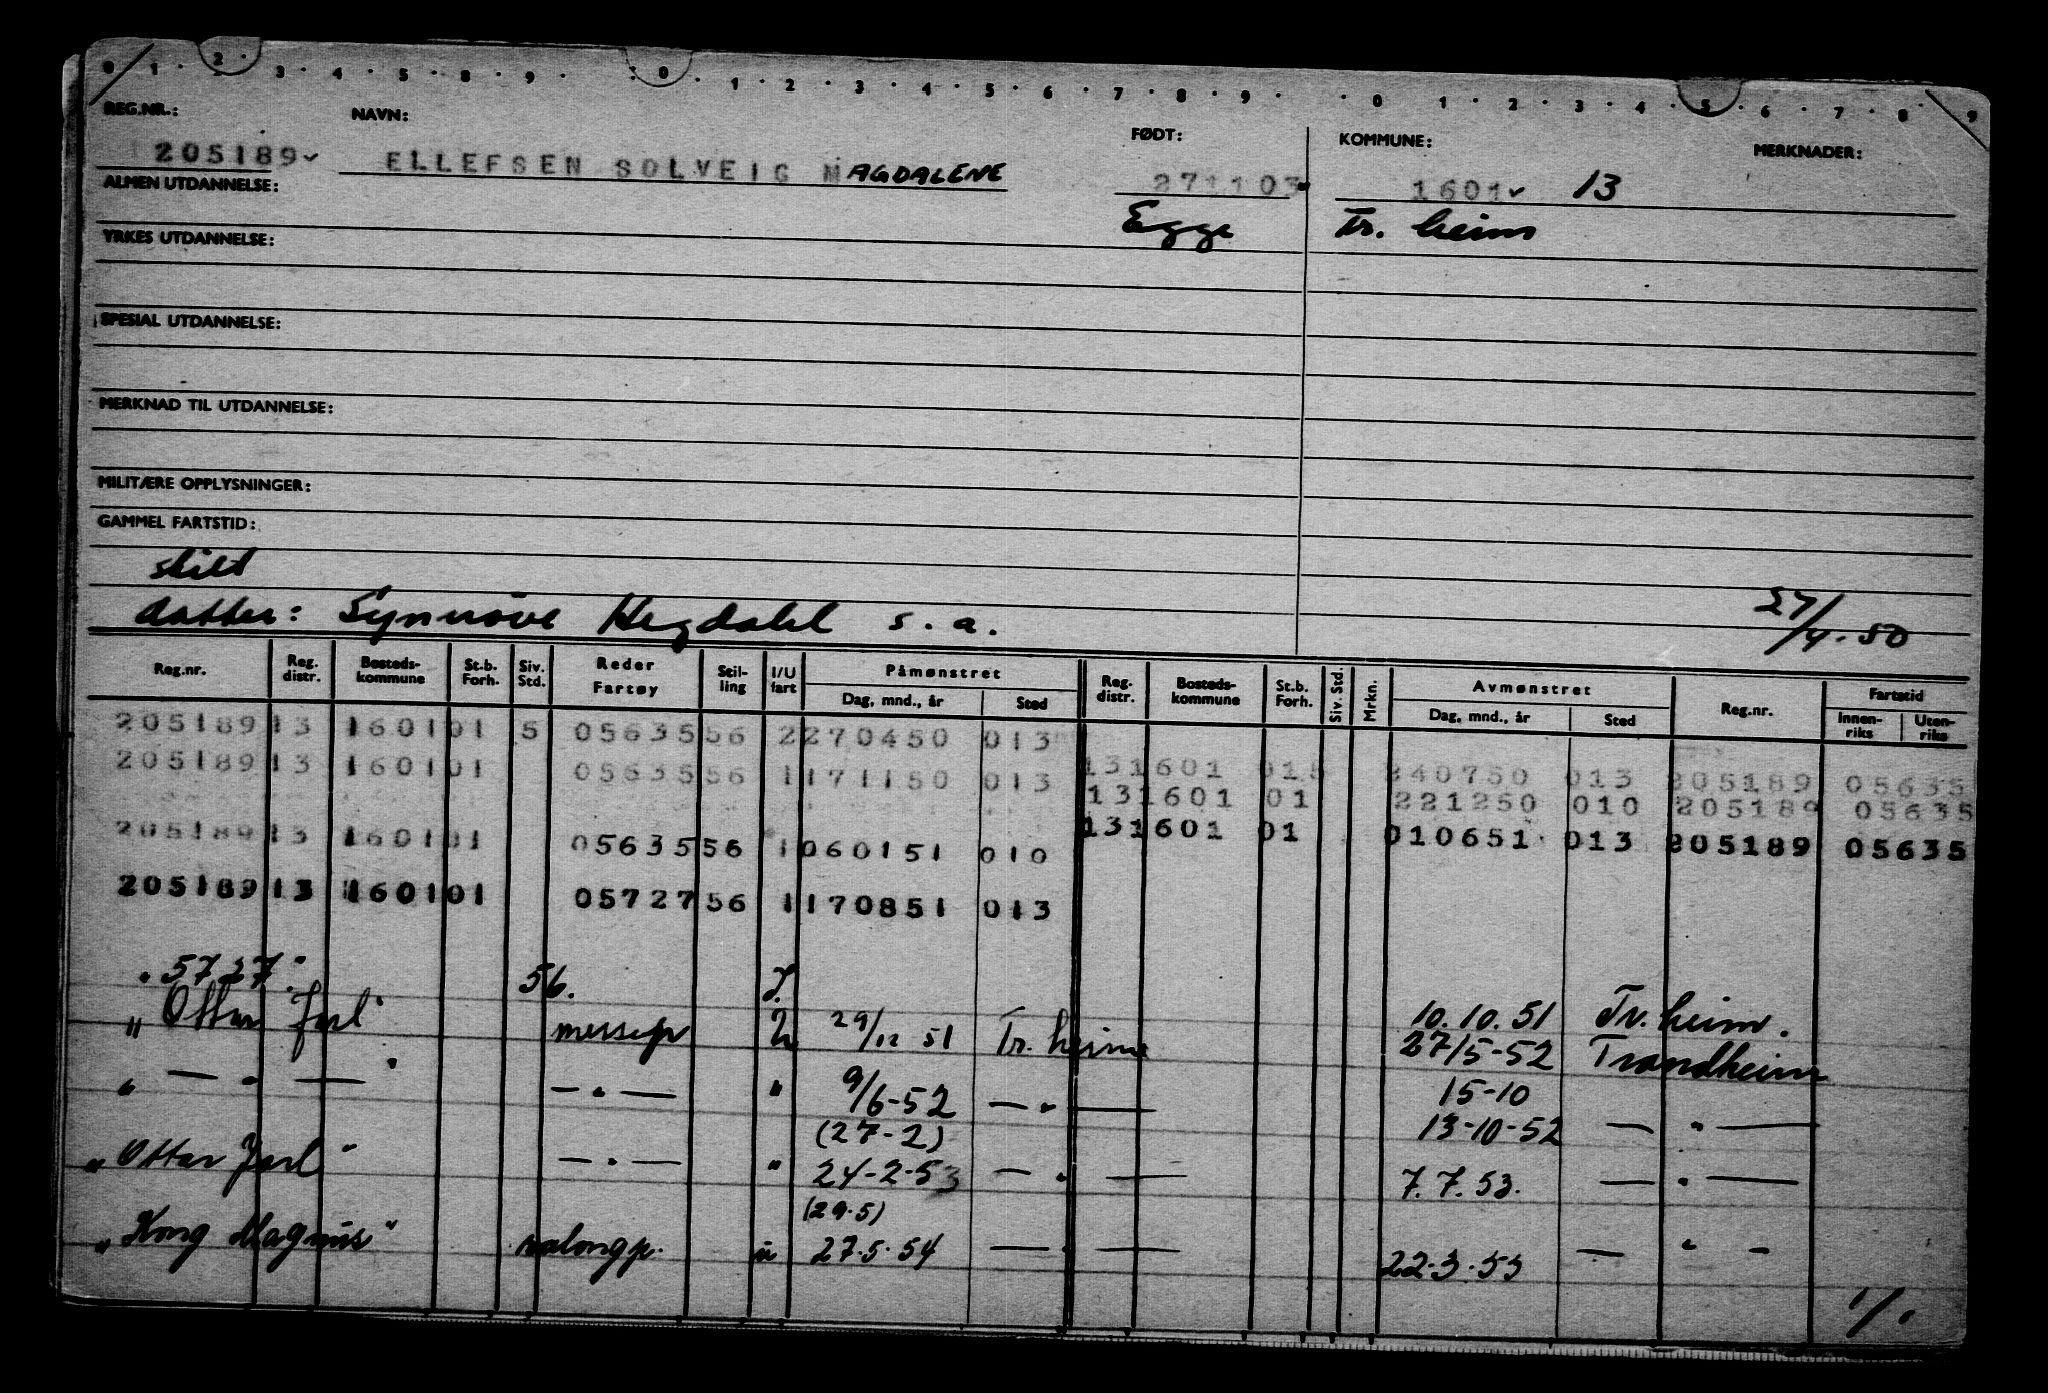 0 1 2 3 4 5 8 9 0 1 2 3 4 5 6 7 8 9 0 1 2 3 4 5 6 7 8 9
REG.NR.: NAVN: FØDT: KOMMUNE: MERKNADER:
205189 ELLEFSEN SOLVEIG MAGDALENE 271103 1601 13
ALMEN UTDANNELSE: Egge Tr. heim
YRKES UTDANNELSE:
SPESIAL UTDANNELSE:
MERKNAD TIL UTDANNELSE:
MILITÆRE OPPLYSNINGER:
GAMMEL FARTSTID:
skilt
datter: Synnöve Hegdahl s. a. 27/4.50
Reg.nr. Reg. distr. Bosteds-kommune St.b. Forh. Siv. Std. Reder Fartøy Stil-ling I/U fart Påmønstret Dag, mnd., år Sted Reg. distr. Bosteds-kommune St.b. Forh. Siv. Std. Mrkn. Avmønstret Dag, mnd., år Sted Reg.nr. Fartstid Innen-riks Uten-riks
205189 13 1601 01 5 05635 56 2 270450 013
131601 015 240750 013 205189 05635
205189 13 1601 01 05635 56 1 171150 013
131601 01 221250 010 205189 05635
205189 13 1601 01 05635 56 1 060151 010
131601 01 010651 013 205189 05635
205189 13 1601 01 05727 56 1 170851 013
" 5727" 56. 10.10.51 Tr. heim.
" Ottar Jarl" messep 29/12 51 Tr. heim 27/5-52 Trondheim
" — " — " — " — " 9/6-52 — " — 15-10
(27-2) 13-10-52 — " —
" Ottar Jarl" — " — " 24-2-53 — " — 7.7.53. — " —
(29.5)
" Kong Magnus" salongp. u 27.5.54 — " — 22.3.53 — " —